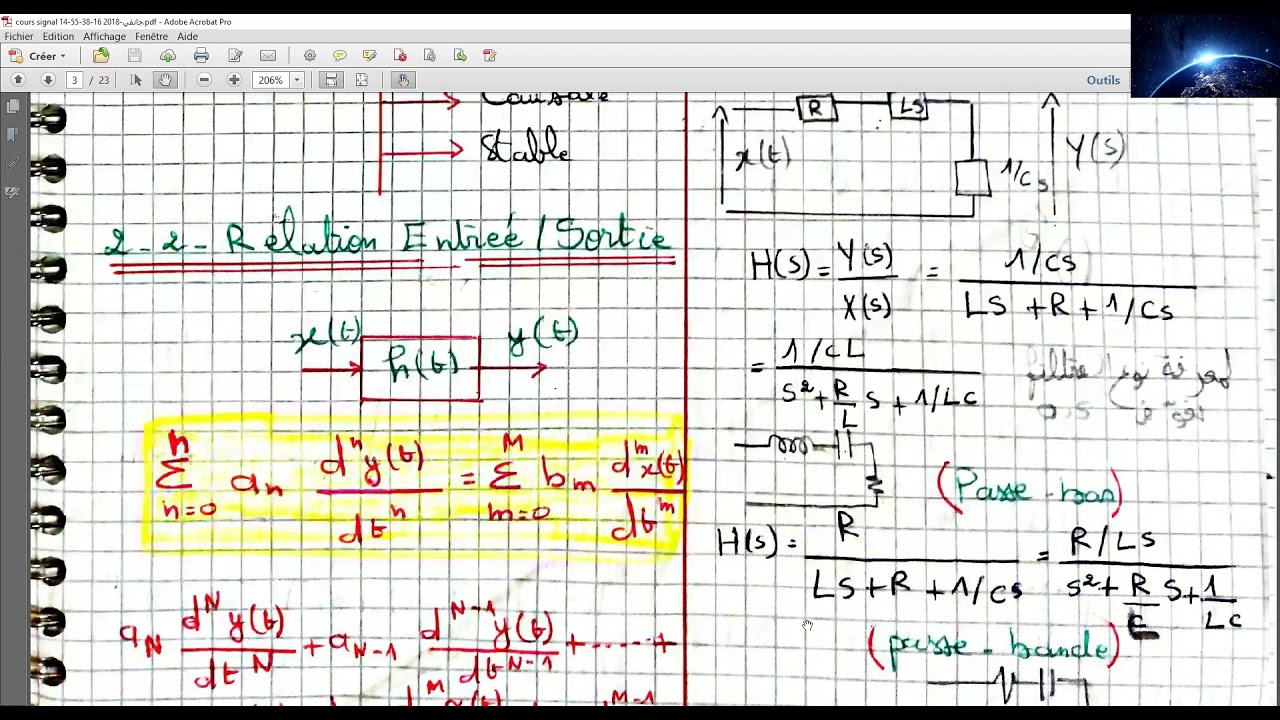 cours signal 14-55-38-16 2018-جانفي.pdf - Adobe Acrobat Pro
Fichier Edition Affichage Fenêtre Aide
Créer
3 / 23
206%
Outils
Causale
Stable
2-2- Rélation Entrée/Sortie
x(t)
h(t)
y(t)
n
∑ a_n d^n y(t)/dt^n = ∑ b_m d^m x(t)/dt^m
n=0
M
m=0
a_N d^N y(t)/dt^N + a_N-1 d^N-1 y(t)/dt^N-1 + ...... +
R
LS
x(t)
1/Cs
Y(s)
H(s) = Y(s)/X(s) = 1/Cs / LS + R + 1/Cs
= 1/CL / S² + R/L S + 1/LC
(Passe-bas)
H(s) = R / LS + R + 1/Cs = R/LS / S² + R/L S + 1/LC
(passe-bande)